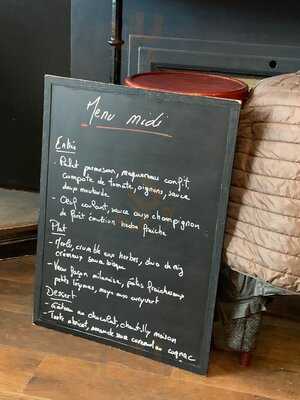 Menu midi
Entrée
- Petit parmesan, maquereau confit,
compotée de tomate, oignons, sauce
soja moutarde
- Oeuf coulant, sauce aux champignon
de Paris émulsion herbe fraîche
Plat
- Merlu, crumble aux herbes, duo de riz
crémeux sauce bisque
- Veau façon milanaise, pâtes
petits légumes, mayo
Dessert
- Gâteau au chocolat, chantilly maison
- Tarte abricot, amande sauce caramel au cognac